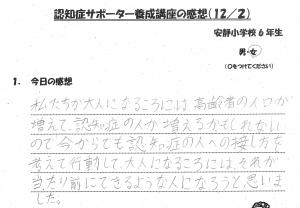 認知症サポーター養成講座の感想(12/2)
安靜小学校6年生
男・女
(○をつけてください)
1. 今日の感想
私たちが大人になるころには、高齢者の人口が
増えて、認知症の人が増えるかもしれない
ので今からでも認知症の人への接し方を
考えて行動して、大人になるころには、それが
当たり前にできるような人になろうと思いま
した。